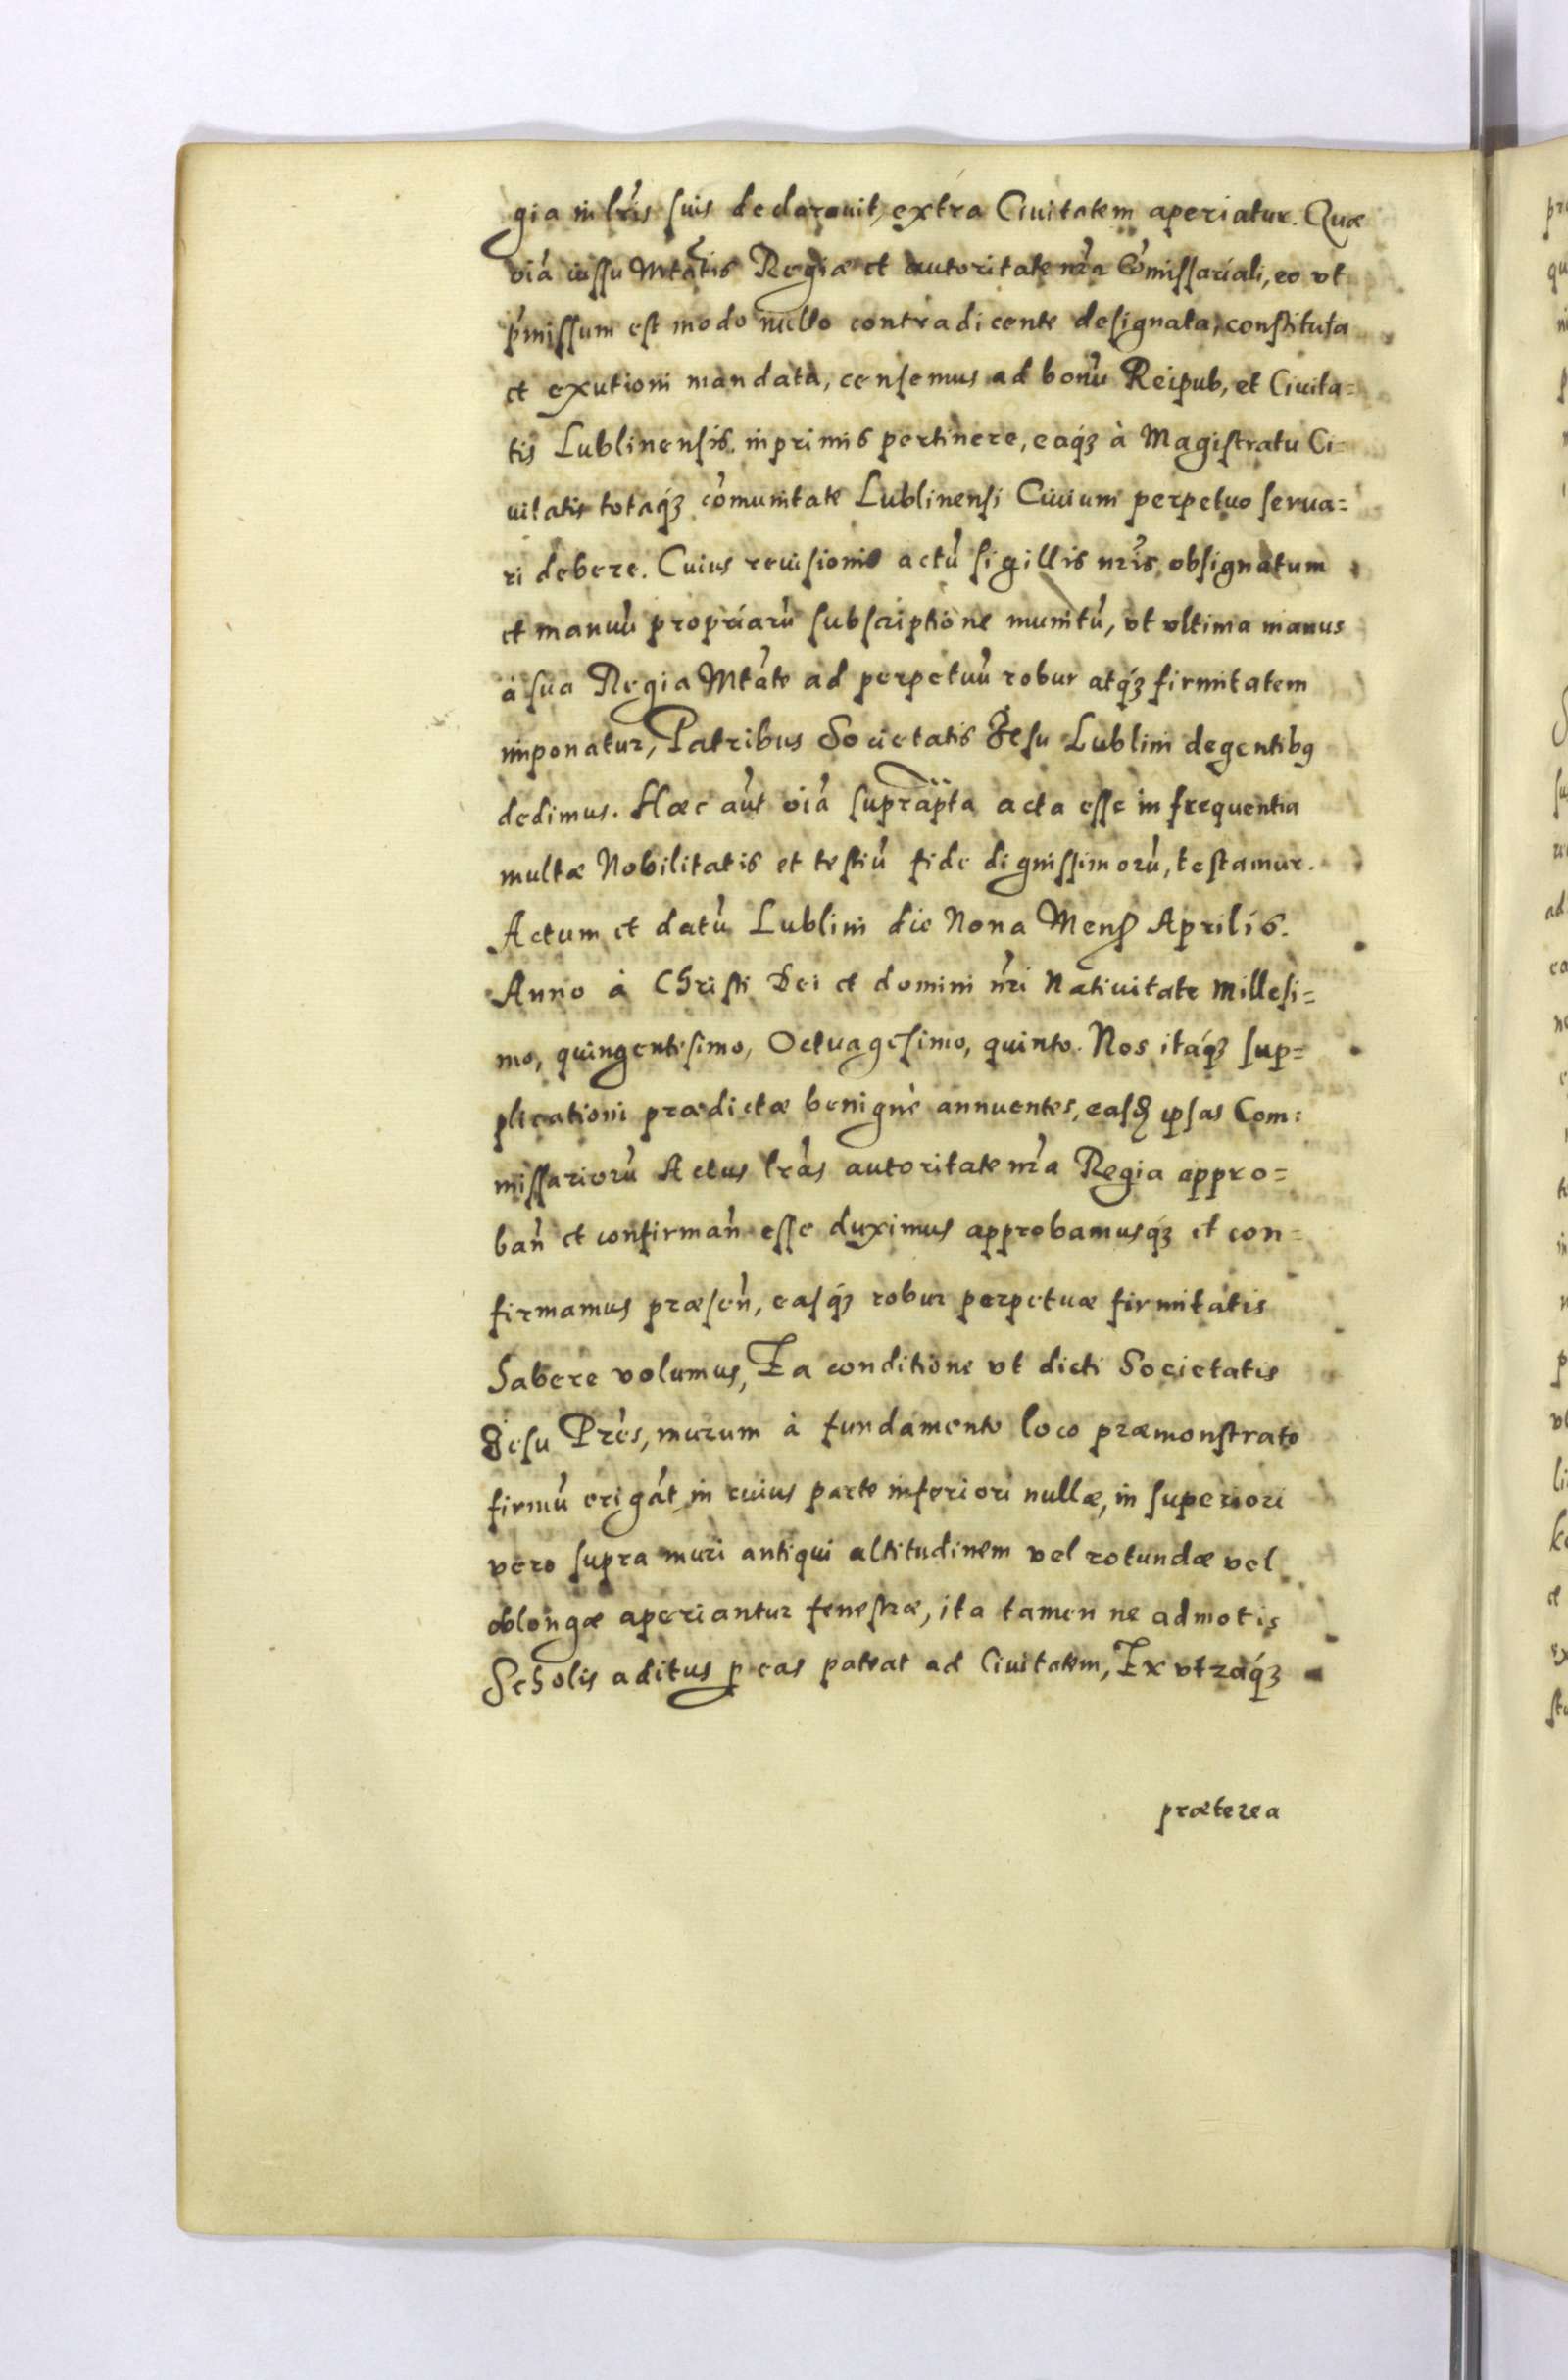 gia in lris suis declarauit, extra Ciuitatem aperiatur. Quæ
oia iussu Mtatis Regiæ et autoritate nra Comissariali, eo vt
pmissum est modo nullo contradicente designata, constituta
et exutioni mandata, censemus ad bonu Reipub, et Ciuita=
tis Lublinensis. inprimis pertinere, eaqȝ à Magistratu Ci=
uitatis totaqȝ comunitate Lublinensi Ciuium perpetuo serua=
ri debere. Cuius reuisionis actu sigillis nris obsignatum
et manuu propriaru subscriptione munitu, vt vltima manus
à sua Regia Mtate ad perpetuu robur atqȝ firmitatem
imponatur, Patribus Societatis Jesu Lublini degentibꝰ
dedimus. Hæc aut oia suprapta acta esse in frequentia
multæ Nobilitatis et testiu fide dignissimoru, testamur.
Actum et datu Lublini die Nona Mens Aprilis.
Anno à Christi Dei et domini nri Natiuitate Millesi=
mo, quingentesimo, Octuagesimo, quinto. Nos itaqȝ sup=
plicationi prædictæ benignè annuentes, easd ipsas Com:
missarioru Actus lras autoritate nra Regia appro=
ban et confirman esse duximus approbamusqȝ et con=
firmamus præsen, easqȝ robur perpetuæ firmitatis
habere volumus, Ea conditione vt dicti Societatis
Jesu Pres, murum à fundamento loco præmonstrato
firmu erigat, in cuius parte inferiori nullæ, in superiori
vero supra muri antiqui altitudinem vel rotundæ vel
oblongæ aperiantur fenestræ, ita tamen ne admotis
Scholis aditus p eas pateat ad Ciuitatem, Ex vtraqȝ
præterea